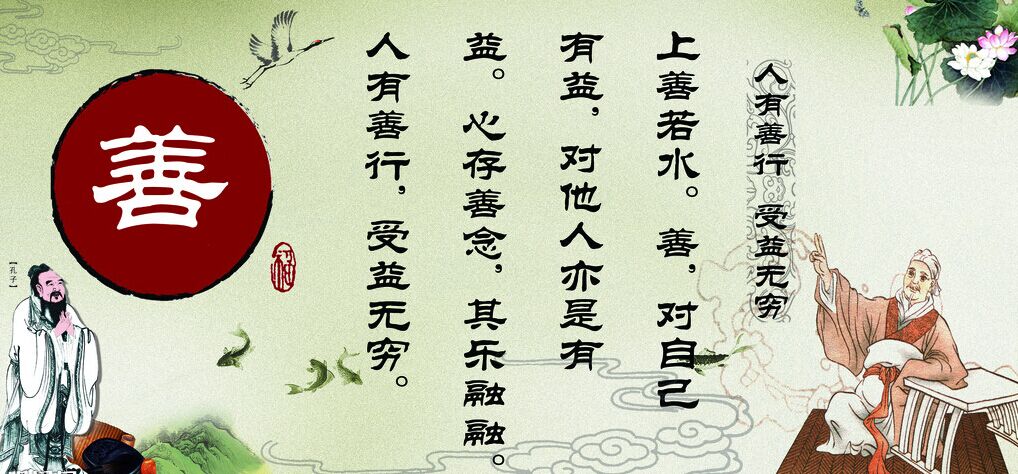 人有善行 受益无穷
上善若水。善,对自己
有益,对他人亦是有
益。心存善念,其乐融融。
人有善行,受益无穷。
善
【孔子】